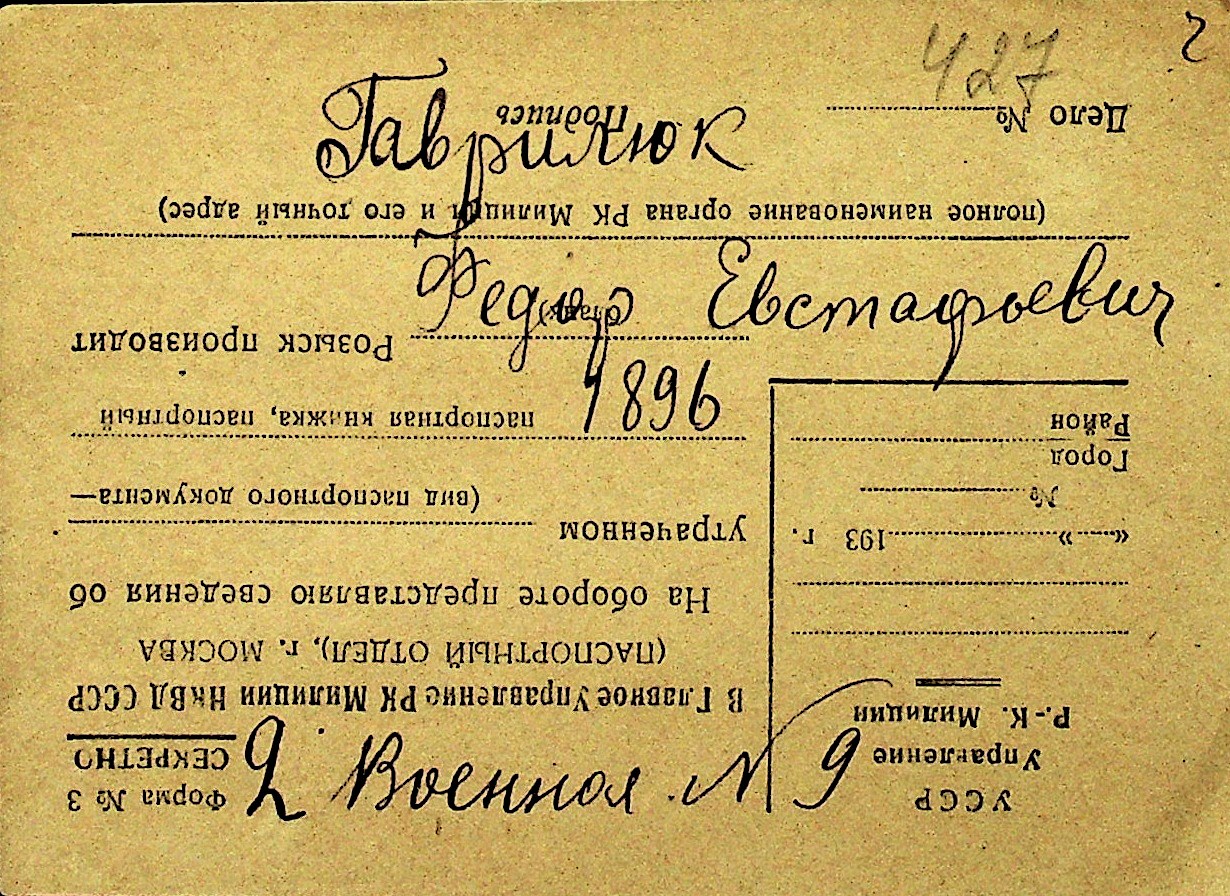 427
Гаврилюк
Федор Евстафьевич
1896
2 Военная N 9
УССР
Управление
Р.-К. Милиции
«___» 193 г.
№
Город
Район
Форма № 3
СЕКРЕТНО
В Главное Управление РК Милиции НКВД СССР
(ПАСПОРТНЫЙ ОТДЕЛ), г. МОСКВА
На обороте представляю сведения об
утраченном
(вид паспортного документа—
паспортная книжка, паспортный
бланк)
Розыск производит
(полное наименование органа РК Милиции и его точный адрес)
Дело №
Подпись